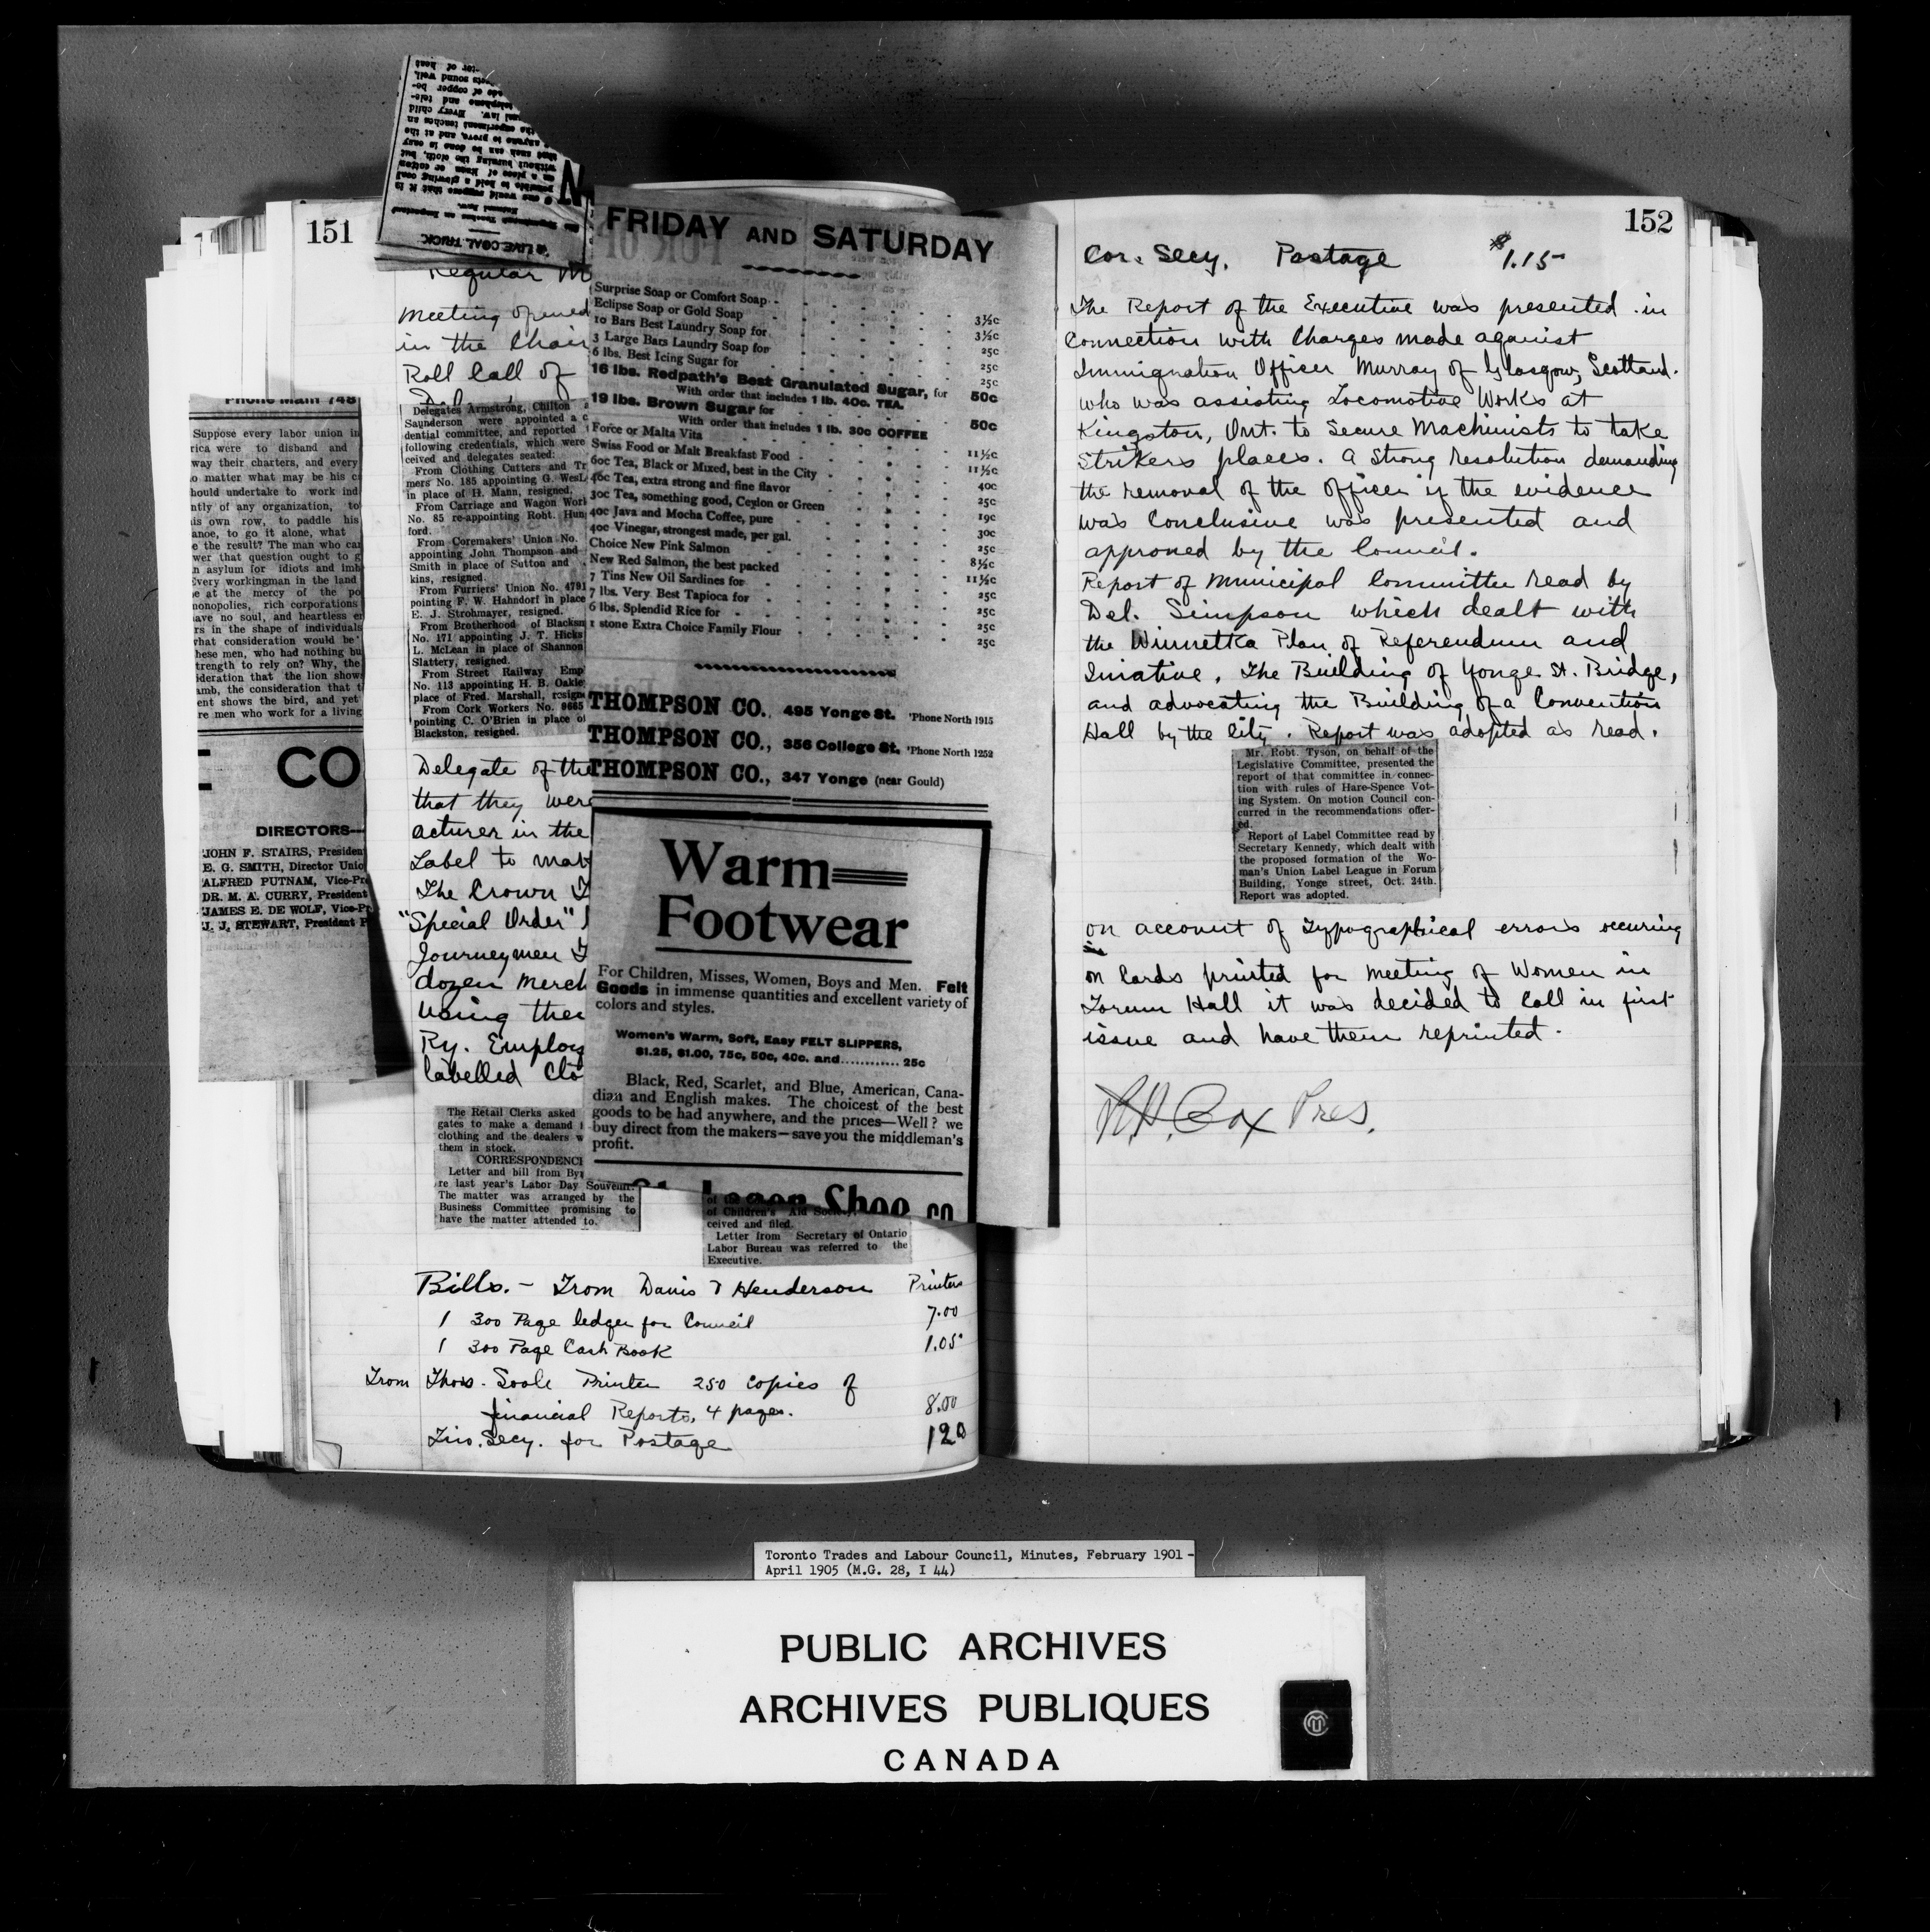 151
Regular M
Meeting opened
in the Chair
Roll Call of
Delegates Armstrong, Chilton
Saunderson were appointed a c
dential committee, and reported
following credentials, which were
ceived and delegates seated:
From Clothing Cutters and Tr
mers No. 185 appointing G. West
in place of H. Mann, resigned.
From Carriage and Wagon Work
No. 85 re-appointing Robt. Hun
ford.
From Coremakers' Union No.
appointing John Thompson and
Smith in place of Sutton and
kins, resigned.
From Furriers' Union No. 4791
pointing F. W. Hahndorf in place
E. J. Strohmayer, resigned.
From Brotherhood of Blacksm
No. 171 appointing J. T. Hicks
L. McLean in place of Shannon
Slattery, resigned.
From Street Railway Emp
No. 113 appointing H. B. Oakle
place of Fred. Marshall, resigne
From Cork Workers No. 8665
pointing C. O'Brien in place of
Blackston, resigned.
Delegate of the
that they were
acturer in the
Label to mak
The Crown T
"Special Order"
Journeymen T
dozen merch
using their
Ry. Employ
labelled Clo
The Retail Clerks asked
gates to make a demand
clothing and the dealers w
them in stock.
CORRESPONDENC
Letter and bill from By
re last year's Labor Day Souvenir.
The matter was arranged by the
Business Committee promising to
have the matter attended to.
of Children's Aid
ceived and filed.
Letter from Secretary of Ontario
Labor Bureau was referred to the
Executive.
Bills. - From Davis & Henderson Printers
1 300 Page ledger for Council 7.00
1 300 Page Cash Book 1.05
From Thos. Soole Printer 250 copies of
financial Reports, 4 pages. 8.00
Fin. Secy. for Postage 120
A LIVE COAL TRUCK
Phone Main 748
Suppose every labor union in
rica were to disband and
way their charters, and every
o matter what may be his c
hould undertake to work ind
ntly of any organization, to
is own row, to paddle his
anoe, to go it alone, what
e the result? The man who can
wer that question ought to g
n asylum for idiots and imb
Every workingman in the land
e at the mercy of the po
monopolies, rich corporations
ave no soul, and heartless e
rs in the shape of individuals
hat consideration would be
hese men, who had nothing bu
trength to rely on? Why, the
ideration that the lion shows
amb, the consideration that t
ent shows the bird, and yet
re men who work for a living
CO
DIRECTORS—
JOHN F. STAIRS, President
E. G. SMITH, Director Unio
ALFRED PUTNAM, Vice-Pre
DR. M. A. CURRY, President
JAMES E. DE WOLF, Vice-P
J. J. STEWART, President P
FRIDAY AND SATURDAY
Surprise Soap or Comfort Soap - 3½c
Eclipse Soap or Gold Soap 3½c
10 Bars Best Laundry Soap for 25c
3 Large Bars Laundry Soap for 25c
6 lbs. Best Icing Sugar for 25c
16 lbs. Redpath's Best Granulated Sugar, for 50c
With order that includes 1 lb. 40c. TEA.
19 lbs. Brown Sugar for 50c
With order that includes 1 lb. 30c COFFEE
Force or Malta Vita 11½c
Swiss Food or Malt Breakfast Food - 11½c
60c Tea, Black or Mixed, best in the City - 40c
40c Tea, extra strong and fine flavor 25c
30c Tea, something good, Ceylon or Green 19c
40c Java and Mocha Coffee, pure 30c
40c Vinegar, strongest made, per gal. 25c
Choice New Pink Salmon 8½c
New Red Salmon, the best packed 11½c
7 Tins New Oil Sardines for 25c
7 lbs. Very Best Tapioca for 25c
6 lbs. Splendid Rice for 25c
1 stone Extra Choice Family Flour 25c
THOMPSON CO., 495 Yonge St. 'Phone North 1915
THOMPSON CO., 356 College St. 'Phone North 1252
THOMPSON CO., 347 Yonge (near Gould)
Warm
Footwear
For Children, Misses, Women, Boys and Men. Felt
Goods in immense quantities and excellent variety of
colors and styles.
Women's Warm, Soft, Easy FELT SLIPPERS,
$1.25, $1.00, 75c, 50c, 40c. and............ 25c
Black, Red, Scarlet, and Blue, American, Cana-
dian and English makes. The choicest of the best
goods to be had anywhere, and the prices—Well? we
buy direct from the makers—save you the middleman's
profit.
152
Cor. Secy. Postage $1.15
The Report of the Executive was presented in
Connection with Charges made against
Immigration Officer Murray of Glasgow, Scotland.
who was assisting Locomotive Works at
Kingston, Ont. to Secure Machinists to take
Strikers places. A Strong resolution demanding
the removal of the officer if the evidence
was Conclusive was presented and
approved by the Council.
Report of Municipal Committee read by
Del. Simpson which dealt with
the Winnetka Plan of Referendum and
Iniative, The Building of Yonge St. Bridge,
and advocating the Building of a Convention
Hall by the City. Report was adopted as read.
Mr. Robt. Tyson, on behalf of the
Legislative Committee, presented the
report of that committee in connec-
tion with rules of Hare-Spence Vot-
ing System. On motion Council con-
curred in the recommendations offer-
ed.
Report of Label Committee read by
Secretary Kennedy, which dealt with
the proposed formation of the Wo-
man's Union Label League in Forum
Building, Yonge street, Oct. 24th.
Report was adopted.
on account of Typographical errors occuring
on Cards printed for Meeting of Women in
Forum Hall it was decided to Call in first
issue and have them reprinted.
R.H. Cox Pres.
Toronto Trades and Labour Council, Minutes, February 1901 -
April 1905 (M.G. 28, I 44)
PUBLIC ARCHIVES
ARCHIVES PUBLIQUES
CANADA